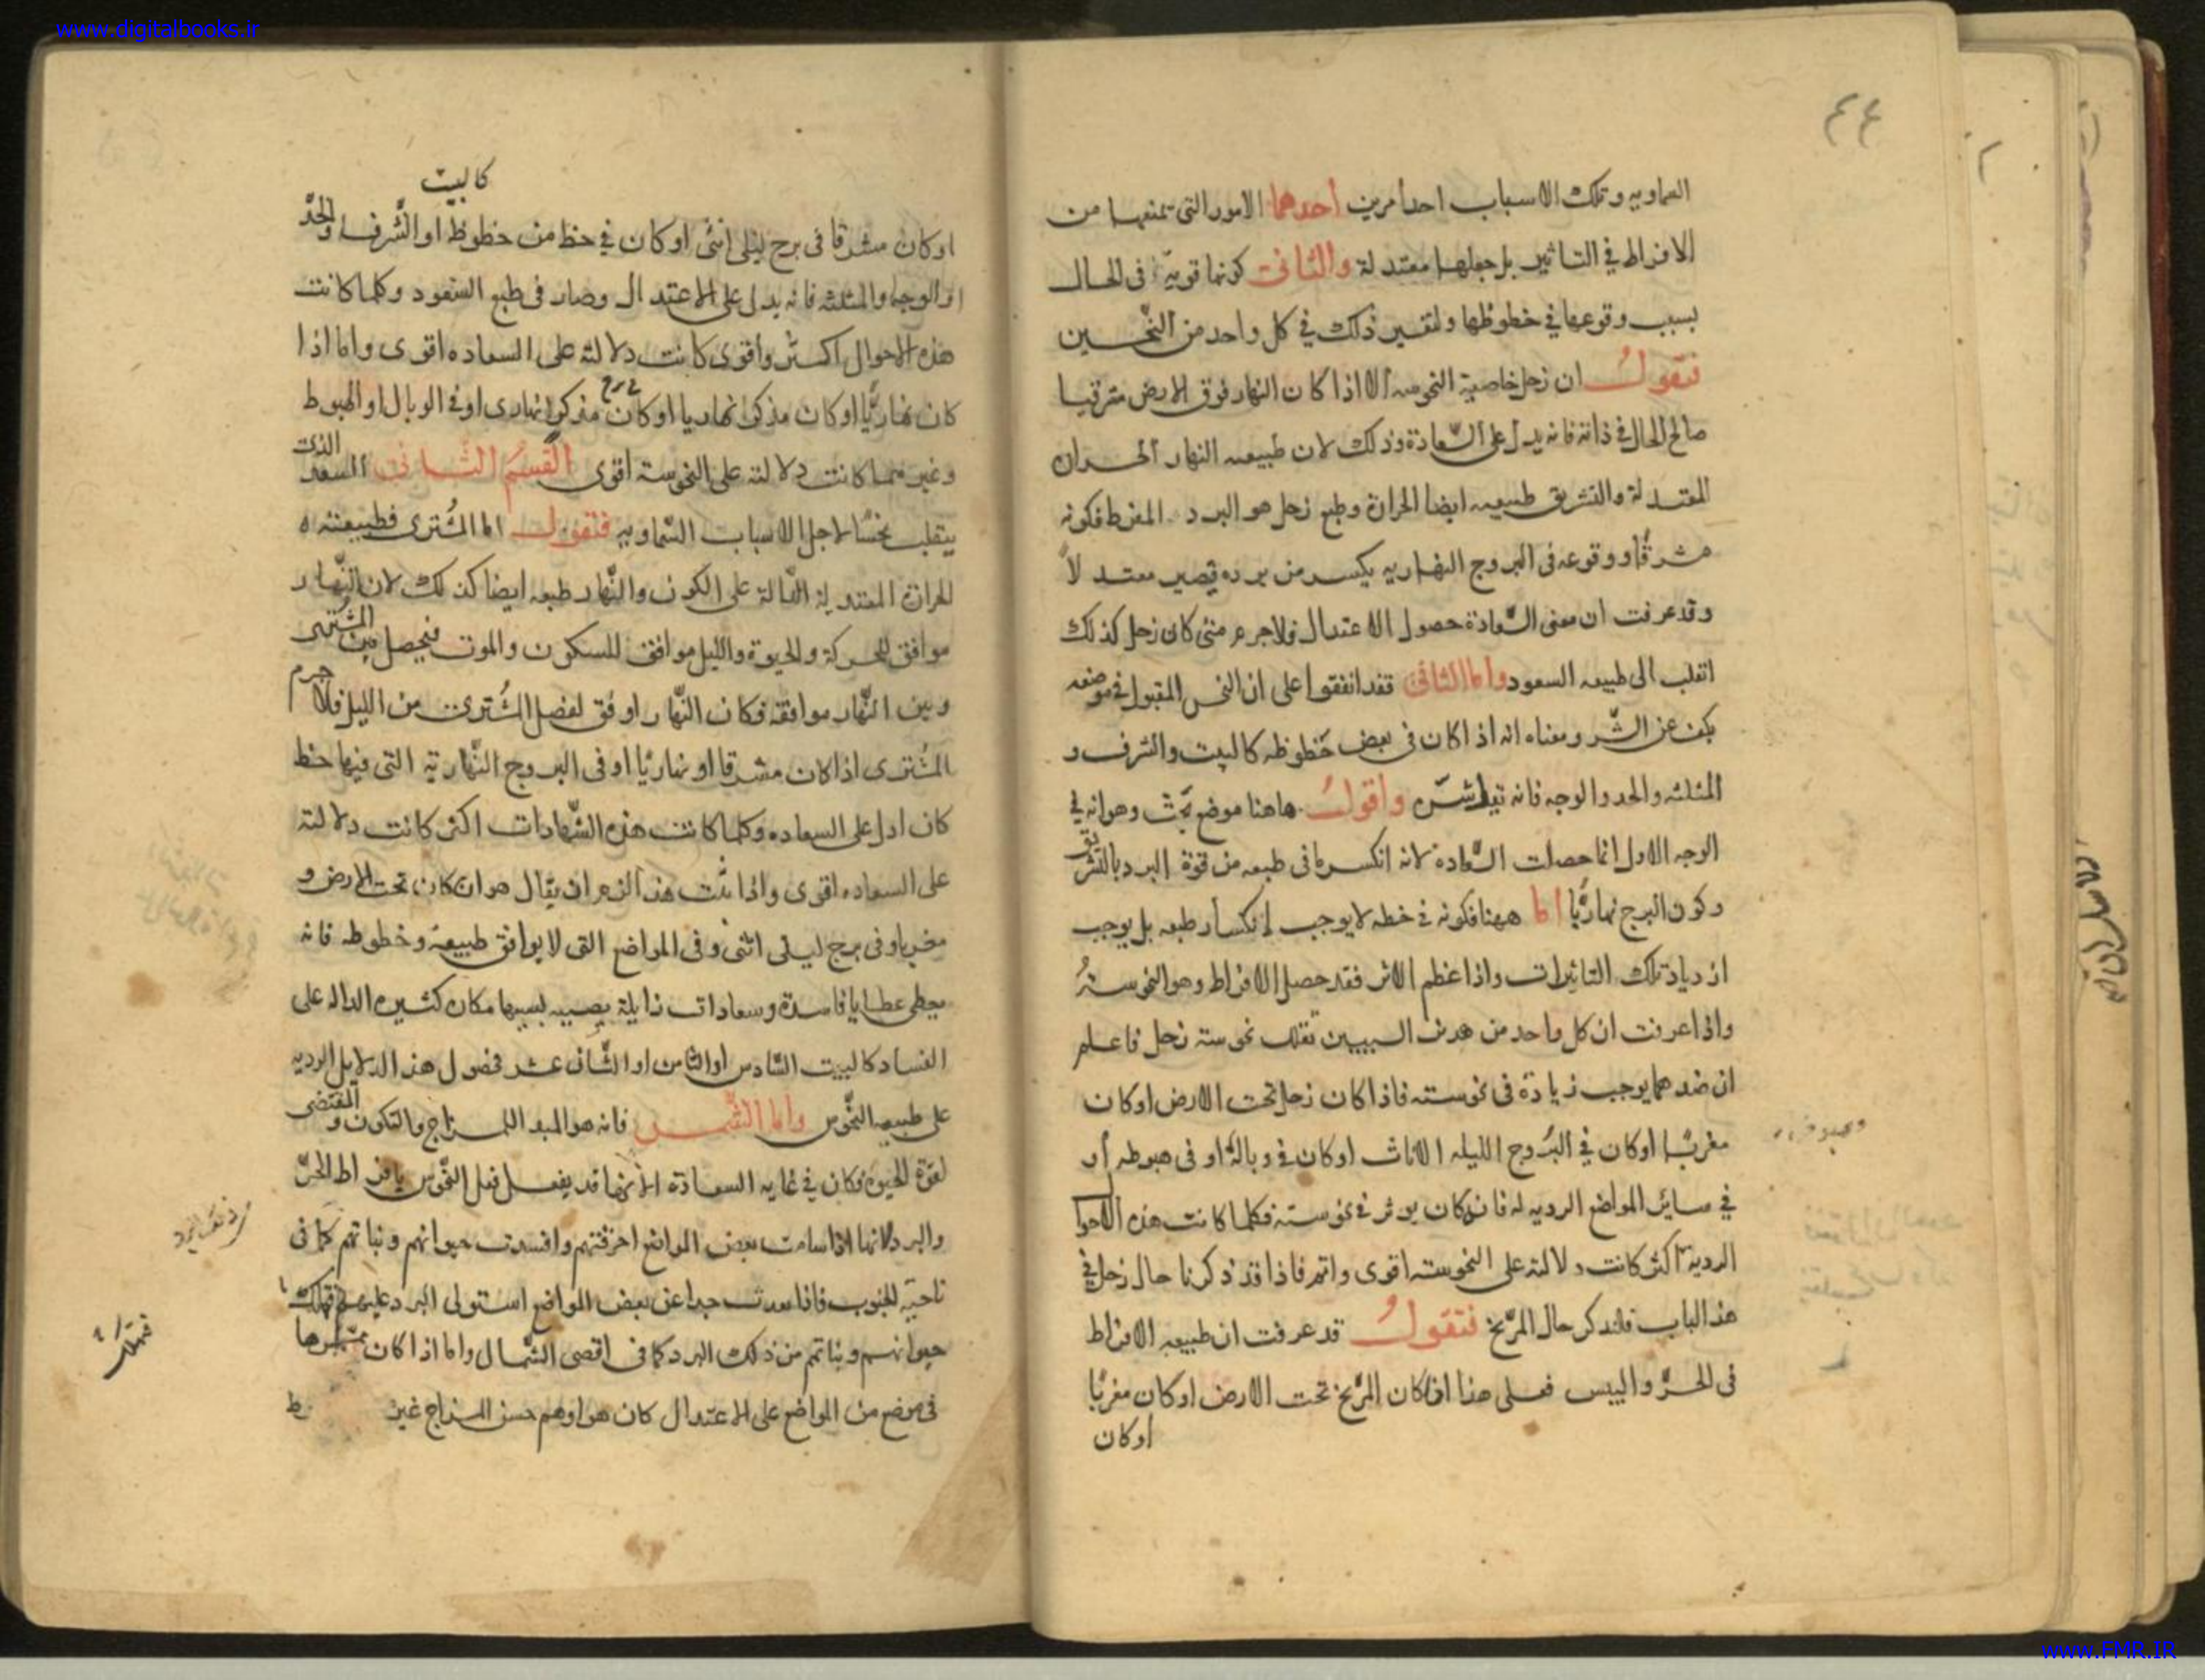 www.digitalbooks.ir
٤٤
السماويه وتلك الاسباب احد أمرين أحدهما الامور التى تمنعها من
الافراط في التاثير بل جعلها معتدلة والثانى كونها قوية فى الحال
بسبب وقوعها في حظوظها ولنفسر ذلك في كل واحد من النحسين
فنقول ان زحل خاصية النحوسه الا اذا كان النهار فوق الارض مشرقيا
صالح الحال في ذاته فانه يدل على السّعادة وذلك لان طبيعه النهار الحراره
المعتدلة والتشريق طبيعه ايضا الحرارة وطبع زحل هو البرد المفرط فكونه
مشرقًا ووقوعه فى البروج النهاريه يكسر من برده فيصير معتدلاً
وقد عرفت ان معنى السّعادة حصول الاعتدال فلاجرم متى كان زحل كذلك
انقلب الى طبيعه السعود واما الثانى فقد اتفقوا على ان النحس المقبول في موضعه
يكف عن الشّر ومعناه انه اذا كان فى بعض حظوظه كالبيت والشرف و
المثلثه والحد والوجه فانه شرّه وأقول هاهنا موضع بحث وهو انه في
الوجه الاول انما حصلت السّعادة لانه انكسر ما فى طبعه من قوة البرد بالتشريق
وكون البرج نهاريًّا اما ههنا فكونه في حظه لا يوجب انكسار طبعه بل يوجب
ازدياد تلك التاثيرات واذا عظم الاثر فقد حصل الافراط وهو النحوسةُ
واذا عرفت ان كل واحد من هدىن السببين نحوسته زحل فاعلم
ان ضدهما يوجب زيادة فى نحوسته فاذا كان زحل تحت الارض اوكان
مغربًا اوكان في البرُوج الليله الاناث اوكان في وباله او فى هبوطه أو
في ساير المواضع الرديه له فانه كان يوثر في نحوسته فكلما كانت هذه الاحوا
الردية أكثر كانت دلالته على النحوسته اقوى واتم فاذا قد ذكرنا حال زحل في
هذا الباب فلنذكر حال المرّيخ فنقول قد عرفت ان طبيعه الافراط
فى الحرّ واليبس فعلى هذا اذا كان المرّيخ تحت الارض اوكان مغربًا
اوكان
كالبيت
اوكان مشرقا فى برج ليلى انثى اوكان في حظ من حظوظ او الشّرف او الحدّ
او الوجه والمثلثه فانه يدل على الاعتدال وصار فى طبع السعود وكلما كانت
هذه الاحوال اكثر وأقوى كانت دلالته على السعاده اقوى واما اذا
كان نهاريًّا اوكان مذكرا نهاريا اوكان برج مذكرا نهارى او في الوبال او الهبوط
وغيرهما كانت دلالته على النحوسته أقوى القسم الثّانى السعد الذى
ينقلب نحسًا لاجل الاسباب السّماويه فنقول اما المُشترى فطبيعته ه
الحرارة المعتدلة الدّالة على الكون والنّهار طبعه ايضا كذلك لان النّهار
موافق للحركة والحيوة والليل موافق للسكون والموت فيحصل بين المشترى
وبين النّهار موافقة فكان النّهار اوفق لفضل المُشترى من الليل فلاجرم
المُشترى اذا كان مشرقا او نهاريًا او فى البروج النّهاريّه التى فيها حظ
كان ادل على السعاده وكلما كانت هذه الشّهادات اكثر كانت دلالته
على السعاده اقوى واذا هذا ان يقال هو ان كان تحت الارض و
مغربا وفى برج ليلى انثى وفى المواضع التى لا يوافق طبيعة وحظوظه فانه
يعطى عطايا فاسدة وسعادات زايلة بسببها مكان كثيره الداله على
الفساد كالبيت السّادس او الثامن او الثّانى عشر فحصول هذه الدلايل الرديه
على طبيعه النّحوس واما الشّمس فانه هو المبدا المزاج والتكون و المقتضى
لقوّة الحيوة فكان في غايه السعادة الا انها قد يفعل فعل النّحوس بافراط الحرّ
والبرد لانها اذا سامتت بعض المواضع احرقتهم وافسدت حيوانهم ونباتهم كما فى
ناحيّه الجنوب فاذا بعدت جدا عن بعض المواضع استولى البرد عليهم فتهلك
حيوانهم ونباتهم من ذلك البرد كما فى اقصى الشّمال واما اذا كان ممرّها
فى موضع من المواضع على الاعتدال كان هواوهم حسن المزاج غير
www.FMR.IR